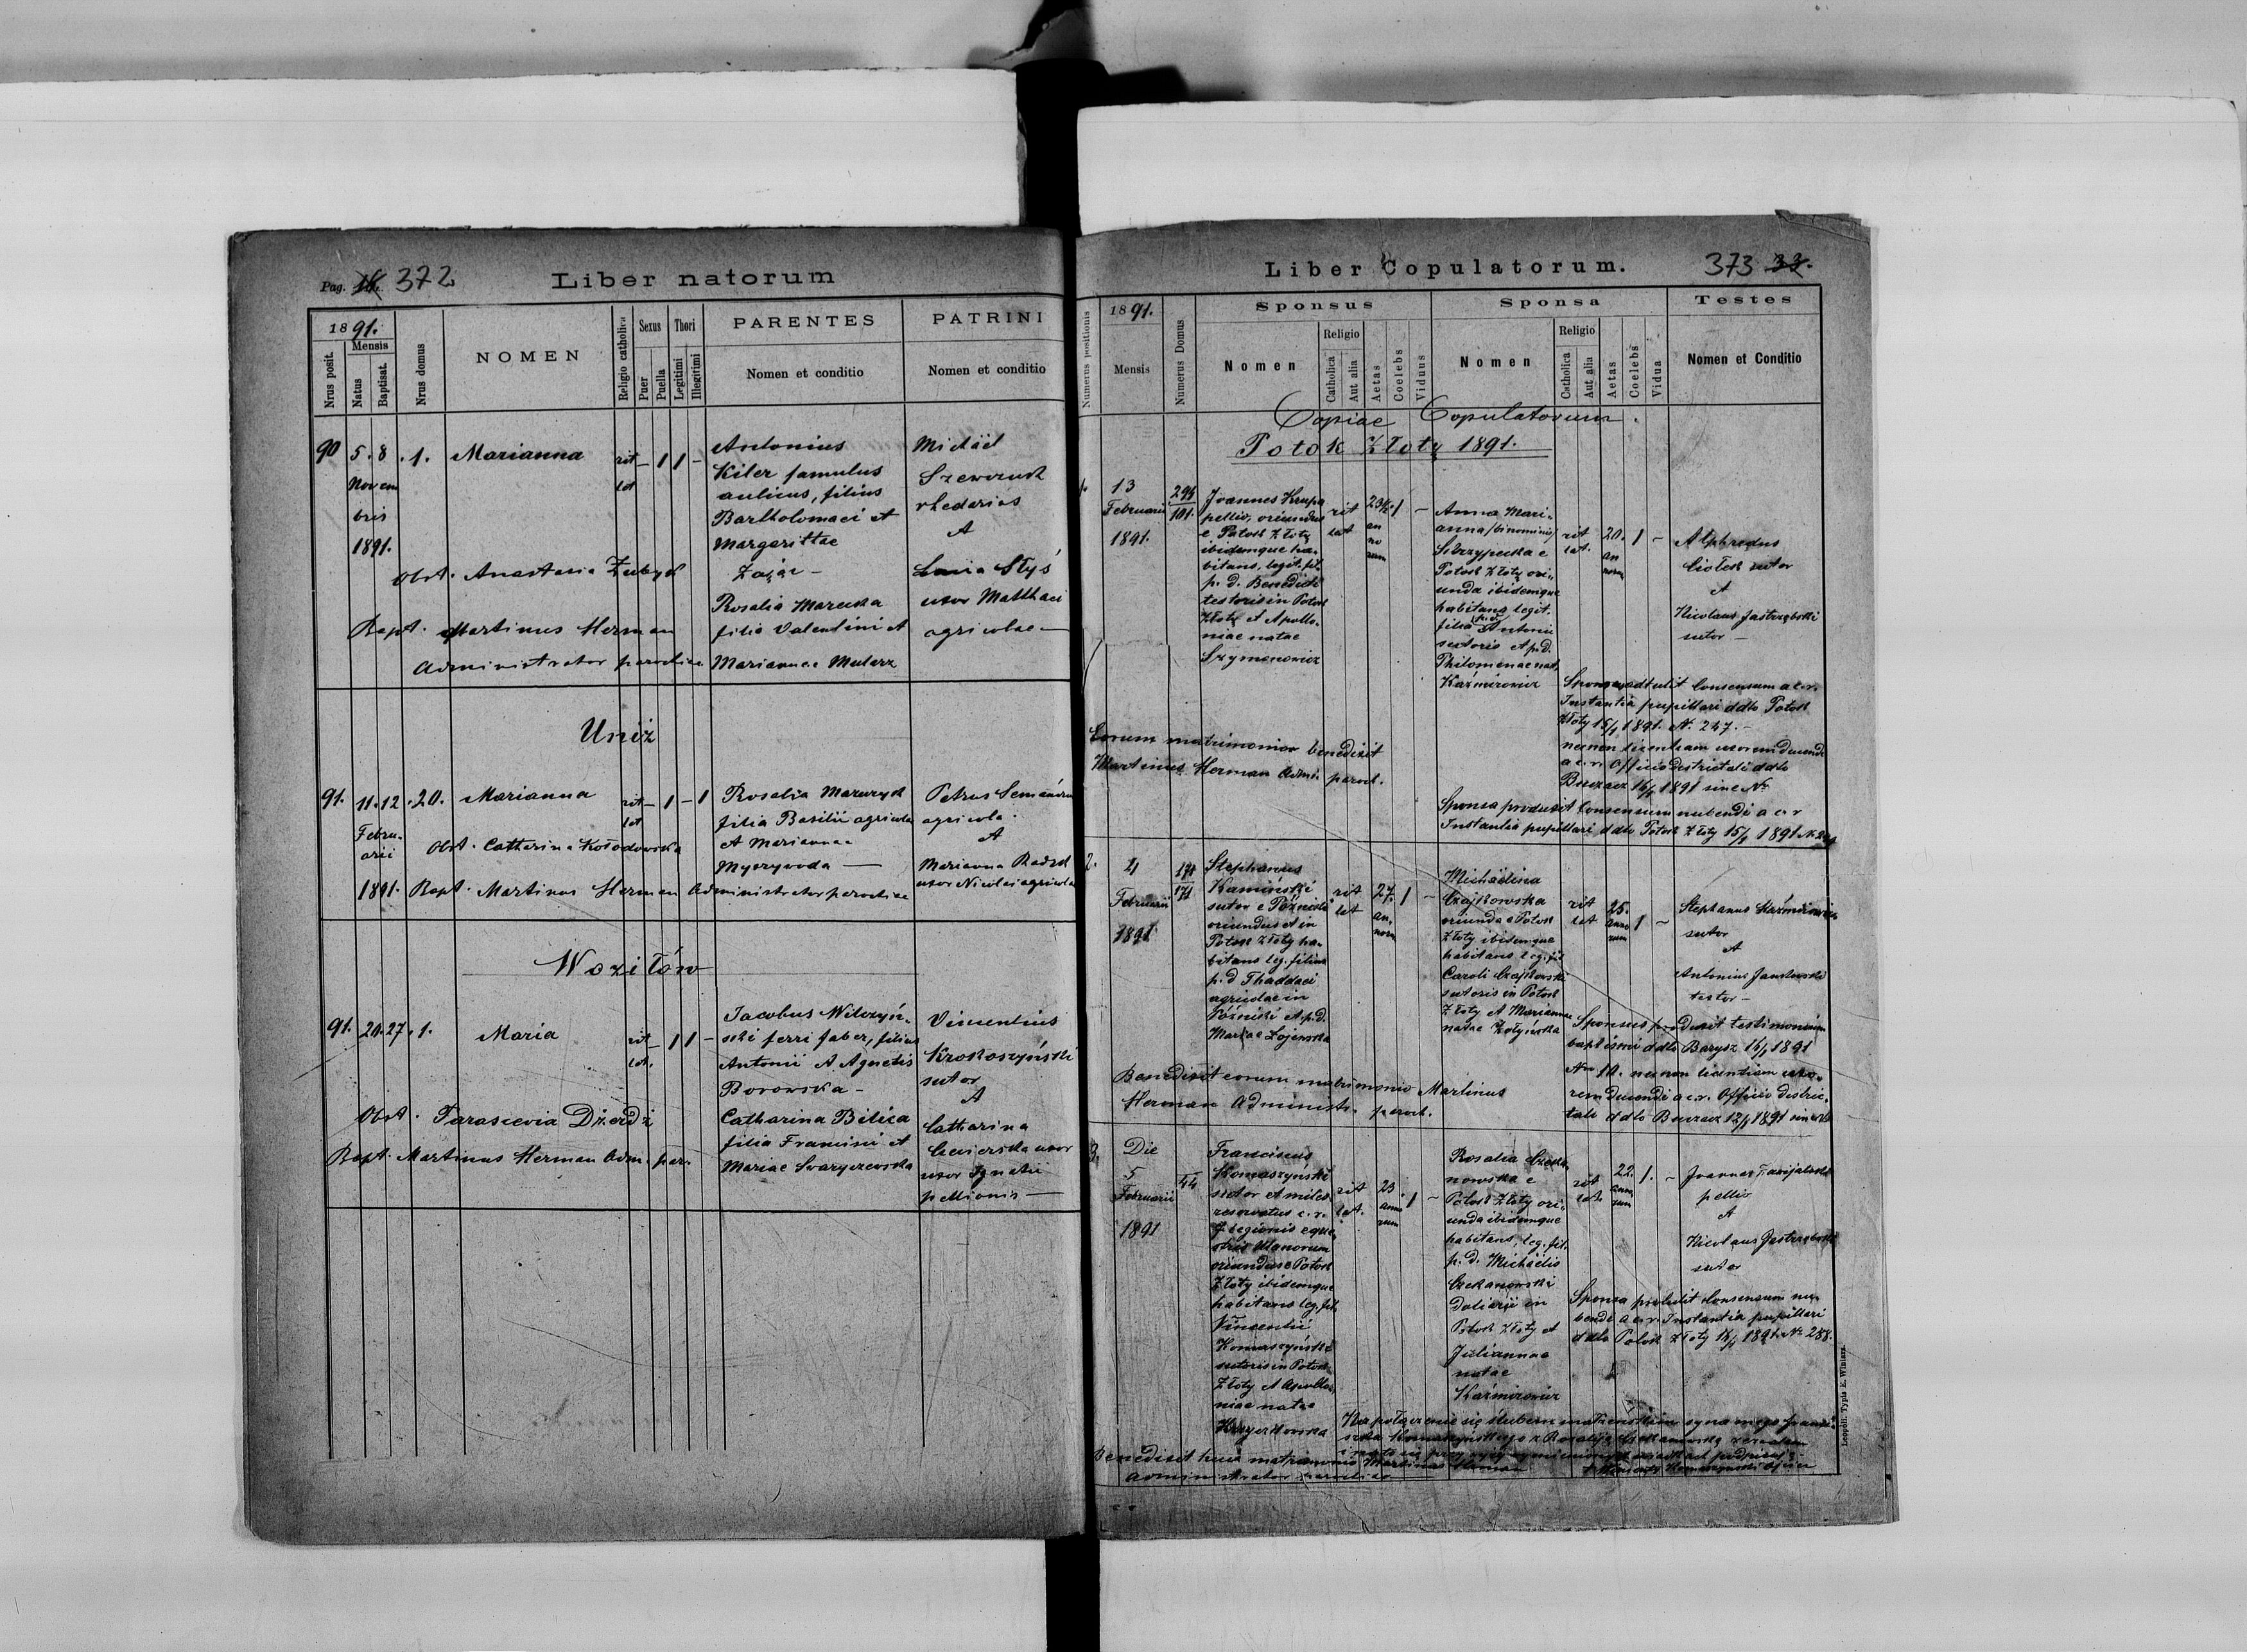 Pag. 16. 372
Liber natorum
1891.
Nrus posit.
Mensis
Natus
Baptisat.
Nrus domus
NOMEN
Religio catholica
Sexus
Puer
Puella
Thori
Legitimi
Illegitimi
PARENTES
Nomen et conditio
PATRINI
Nomen et conditio
90 5. 8. 1. Marianna rit lat – 1 1 –
Novem
bris
1891.
Antonius
Kiler famulus
aulicus, filius
Bartholomaei et
Margarittae
Zając –
Rosalia Marecka
filia Valentini et
Mariannae Mularz
Michäel
Szewczuk
rhedarius
et
Styś
uxor Matthaei
agricolae –
Obst. Anastasia Zubyk
Bapt. Martinus Herman
Administrator parochiae
Uniż
91. 11. 12. 20. Marianna rit lat – 1 – 1
Febru-
arii
1891.
Rosalia Mazuryk
filia Basilii agricola
et Mariannae
Myczywoda –
Petrus
agricola.
et
Marianna
uxor Nicolai agricola
Obst. Catharina Kołodowska
Bapt. Martinus Herman Administrator parochiae
Woziłów
91. 20. 27. 1. Maria rit lat. – 1 1 –
Jacobus Wilczyń-
ski ferri faber, filius
Antonii et Agnetis
Borowska –
Catharina Bilica
filia Francisci et
Mariae
Vincentius
Krokoszyński
sutor
et
Catharina
uxor
uxor Ignatii
pellionis –
Obst. Parascevia Dżerdż
Bapt. Martinus Herman Adm. par.
Liber Copulatorum.
373 33.
Numerus positionis
1891.
Mensis
Numerus Domus
Sponsus
Nomen
Religio
Catholica
Aut alia
Aetas
Coelebs
Viduus
Sponsa
Nomen
Religio
Catholica
Aut alia
Aetas
Coelebs
Vidua
Testes
Nomen et Conditio
Copiae Copulatorum.
Potok Złoty 1891.
1.
13
Februarii
1891.
Joannes Krupa
pellio, oriundus
e Potok Złoty
ibidemque ha-
bitans, legit. fil.
p. d. Benedicti
textoris in Potok
Złoty et Apollo-
niae natae
Szymonowicz
rit
lat
23½
an
no
rum
1 –
Anna Mari-
anna /binominis/
Skrzypecka e
Potok Złoty ori-
unda ibidemque
habitans legit.
filia p.d. Antonii
sutoris et p.d.
Philomenae nat.
Kaźmirowicz
rit
lat.
20.
an
norum
1 –
Alphredus
Ciołek sutor
et
Nicolaus Jastrzębski
sutor –
Sponsus adtulit Consensum a c.r.
Instantia pupillari ddto Potok
Złoty 15/1 1891. N. 247. –
necnon licentiam uxorem ducendi
a c.r. Officio districtali ddto
Buczacz 1891 sine Nr
Sponsa produxit Consensum nubendi a c.r
Instantia pupillari ddto Potok Złoty 15/1 1891 N.
Eorum matrimonium benedixit
Martinus Herman Admi. paroch.
2.
4
Februarii
1891
171
Stephanus
Kamiński
sutor e
oriundus et in
Potok Złoty ha-
bitans leg. filius
p. d Thaddaei
agricolae in
et p.d.
Mariae Łojewska
rit
lat
27.
an-
norum
1 –
Michäelina
Czajkowska
oriunda e Potok
Złoty ibidemque
habitans leg. fil.
Caroli Czajkowski
sutoris in Potok
Złoty et Mariannae
natae Żołyńska
rit
lat
25.
anno
rum
1 –
Stephanus Kaźmirowicz
sutor
et
Antonius
textor –
Sponsus produxit testimonium
baptismi ddto Barysz 1891
Nro 10. necnon licentiam uxo-
rem ducendi a c.r. Officio distric-
tali ddto Buczacz 12/1 1891 sine Nr
Benedixit eorum matrimonio Martinus
Herman Administr. paroch.
3.
Die
5
Februarii
1891
44
Franciscus
Komaszyński
sutor et miles
reservatus c. r.
7 legionis eque-
stris Ulanorum
oriundus e Potok
Złoty ibidemque
habitans leg. fil.
Vincentii
Komaszyński
sutoris in Potok
Złoty et Apollo-
niae natae
rit
lat.
23.
anno
rum
1 –
Rosalia Czeka-
nowska e
Potok Złoty ori-
unda ibidemque
habitans, leg. fil.
p. d. Michäelis
Czekanowski
doliarii in
Potok Złoty et
Juliannae
natae
Kaźmirowicz
rit
lat.
22.
anno
rum
1. –
Joannes
pellio
et
Nicolaus Jastrzębski
sutor
Sponsa protulit Consensum nu-
bendi a c.r. Instantia pupillari
ddto Potok Złoty 1891. N. 288.
Na połączenie się ślubem małżeńskim syna mego Franci-
szka Komaszyńskiego z Rozalią Czekanowską zezwalam
Benedixit huic matrimonio Martinus Herman
Administrator parochiae
Leopoli. Typis E. Winiarz.